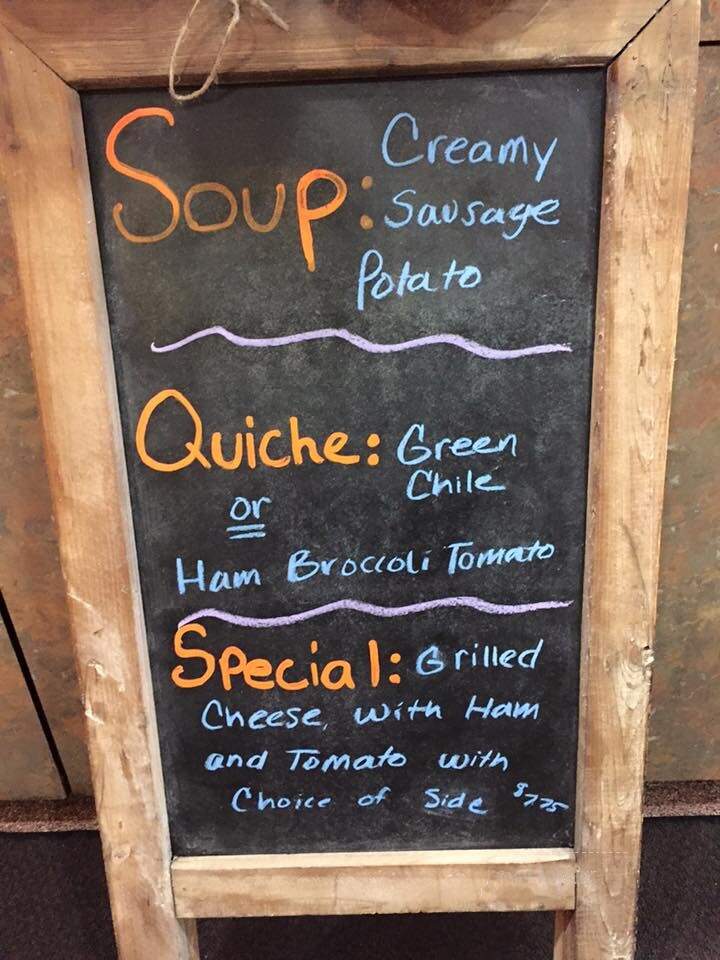 Soup: Creamy
Sausage
Potato
Quiche: Green
Chile
or
Ham Broccoli Tomato
Special: Grilled
Cheese, with Ham
and Tomato with
Choice of Side $7.75